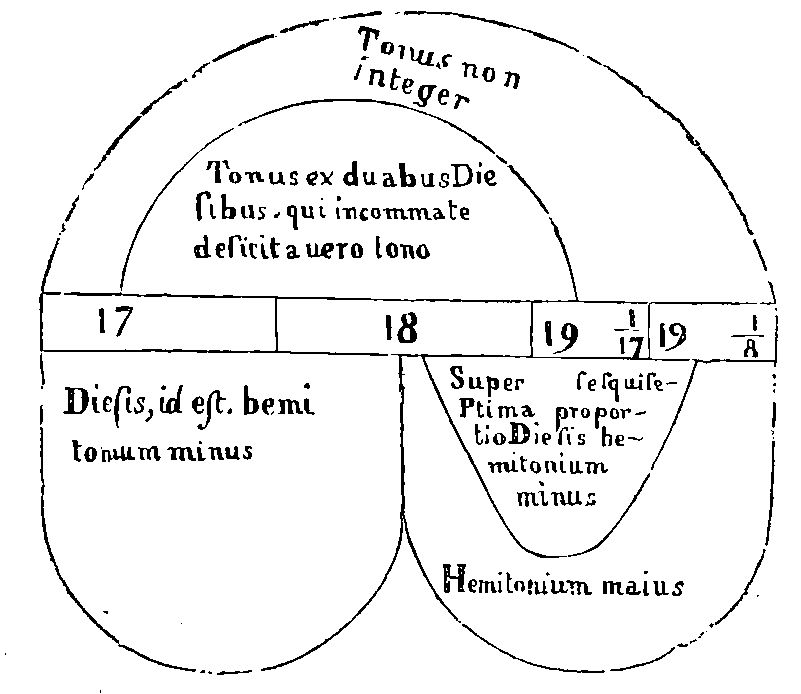 Tonus non
integer
Tonus ex duabus Die
ſibus. qui incommate
deficit a uero tono
17 18 19 1/17 19 1/8
Dieſis, id eſt. hemi
tonium minus
Super ſeſquiſe-
Ptima propor-
tio Dieſis he-
mitonium
minus
Hemitonium maius